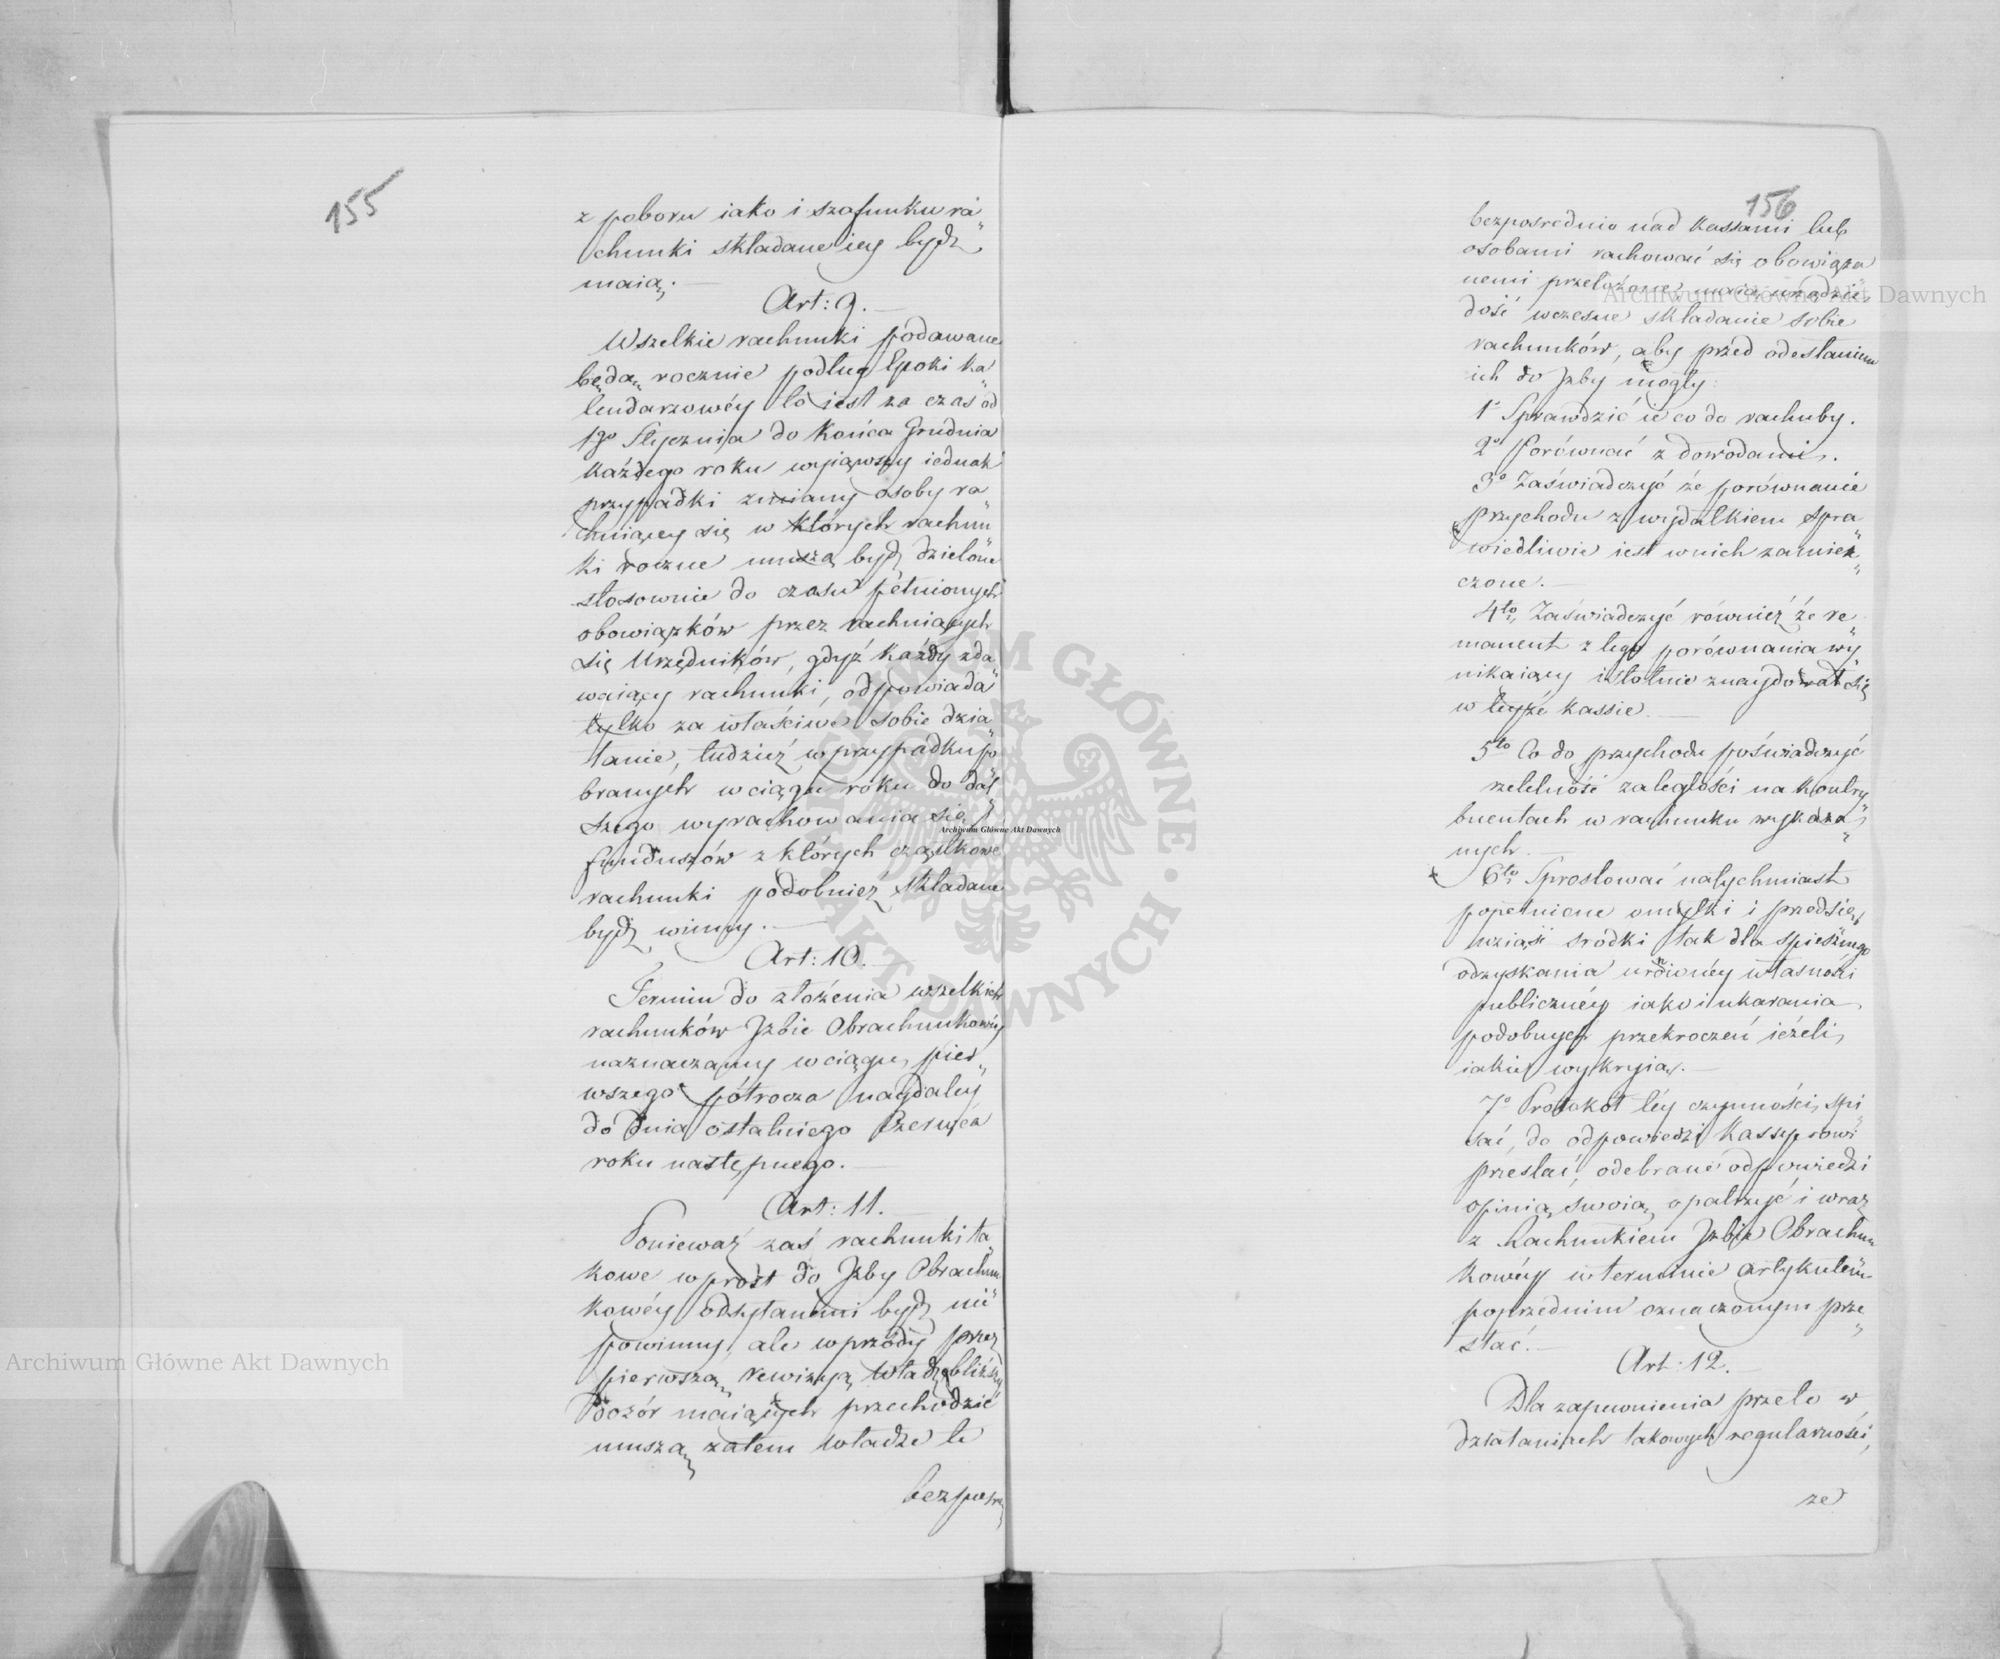 155
z poboru iako i szafunku ra„
chunki składane iey bydź
maią. —
Art: 9. —
Wszelkie rachunki podawane
będą rocznie podług Epoki ka„
lendarzowéy to iest za czas od
1go Stycznia do Końca Grudnia
każdego roku wyiąwszy iednak
przypadki zmiany osoby ra„
chuiącey się w których rachun„
ki roczne muszą bydź dzielone
stosownie do czasu pełnionych
obowiązków przez rachuiących
się Urzędników, gdyż każdy zda„
waiący rachunki, odpowiada
tylko za właściwe sobie dzia„
łanie, tudzież w przypadku po„
branych w ciągu roku do dal„
szego wyrachowania się
funduszów z których cząstkowe
rachunki podobnież składane
bydź winny. —
Art: 10. —
Termin do złożenia wszelkich
rachunków Izbie Obrachunkowéy
naznaczamy w ciągu pier„
wszego półrocza naydaley
do dnia ostatniego Czerwca
roku następnego. —
Art: 11. —
Ponieważ zaś rachunki ta„
kowe wprost do Izby Obrachun„
kowéy odsyłanemi bydź nie
powinny, ale wprzódy przez
pierwszą rewizyą Władz bliższy
Dozór maiących przechodzić
muszą, zatem Władze te
bezpośre„
156
bezpośrednio nad Kassami lub
osobami rachować się obowiąza„
nemi przełożone, maią urządzić
dość wczesne składanie sobie
rachunków, aby przed odesłaniem
ich do Izby mogły:
1o Sprawdzić ie co do rachuby.
2o Porównać z dowodami.
3o Zaświadczyć że porównanie
przychodu z wydatkiem spra„
wiedliwie iest w nich zamiesz„
czone. —
4to Zaświadczyć również że re„
manent z tego porównania wy„
nikaiący istotnie znaydował się
w teyże kassie. —
5to Co do przychodu poświadczyć
rzetelność zaległości na kontry„
buentach w rachunku wykaza„
nych. —
6to Sprostować natychmiast
popełnione omyłki i przedsię„
wziąść srodki tak dla spiesznego
odzyskania uronionéy własności
publicznéy iako i ukarania
podobnych przekroczeń ieżeli
iakie wykryią. —
7o Protokół téy czynności spi„
sać, do odpowiedzi Kassyerowi
przesłać, odebrane odpowiedzi
opinią swoią opatrzyć i wraz
z Rachunkiem Izbie Obrachun„
kowéy w terminie artykułem
poprzednim oznaczonym prze„
słać. —
Art: 12. —
Dla zapewnienia przeto w
działaniach takowych regularności,
ze
Archiwum Główne Akt Dawnych
Archiwum Główne Akt Dawnych
Archiwum Główne Akt Dawnych